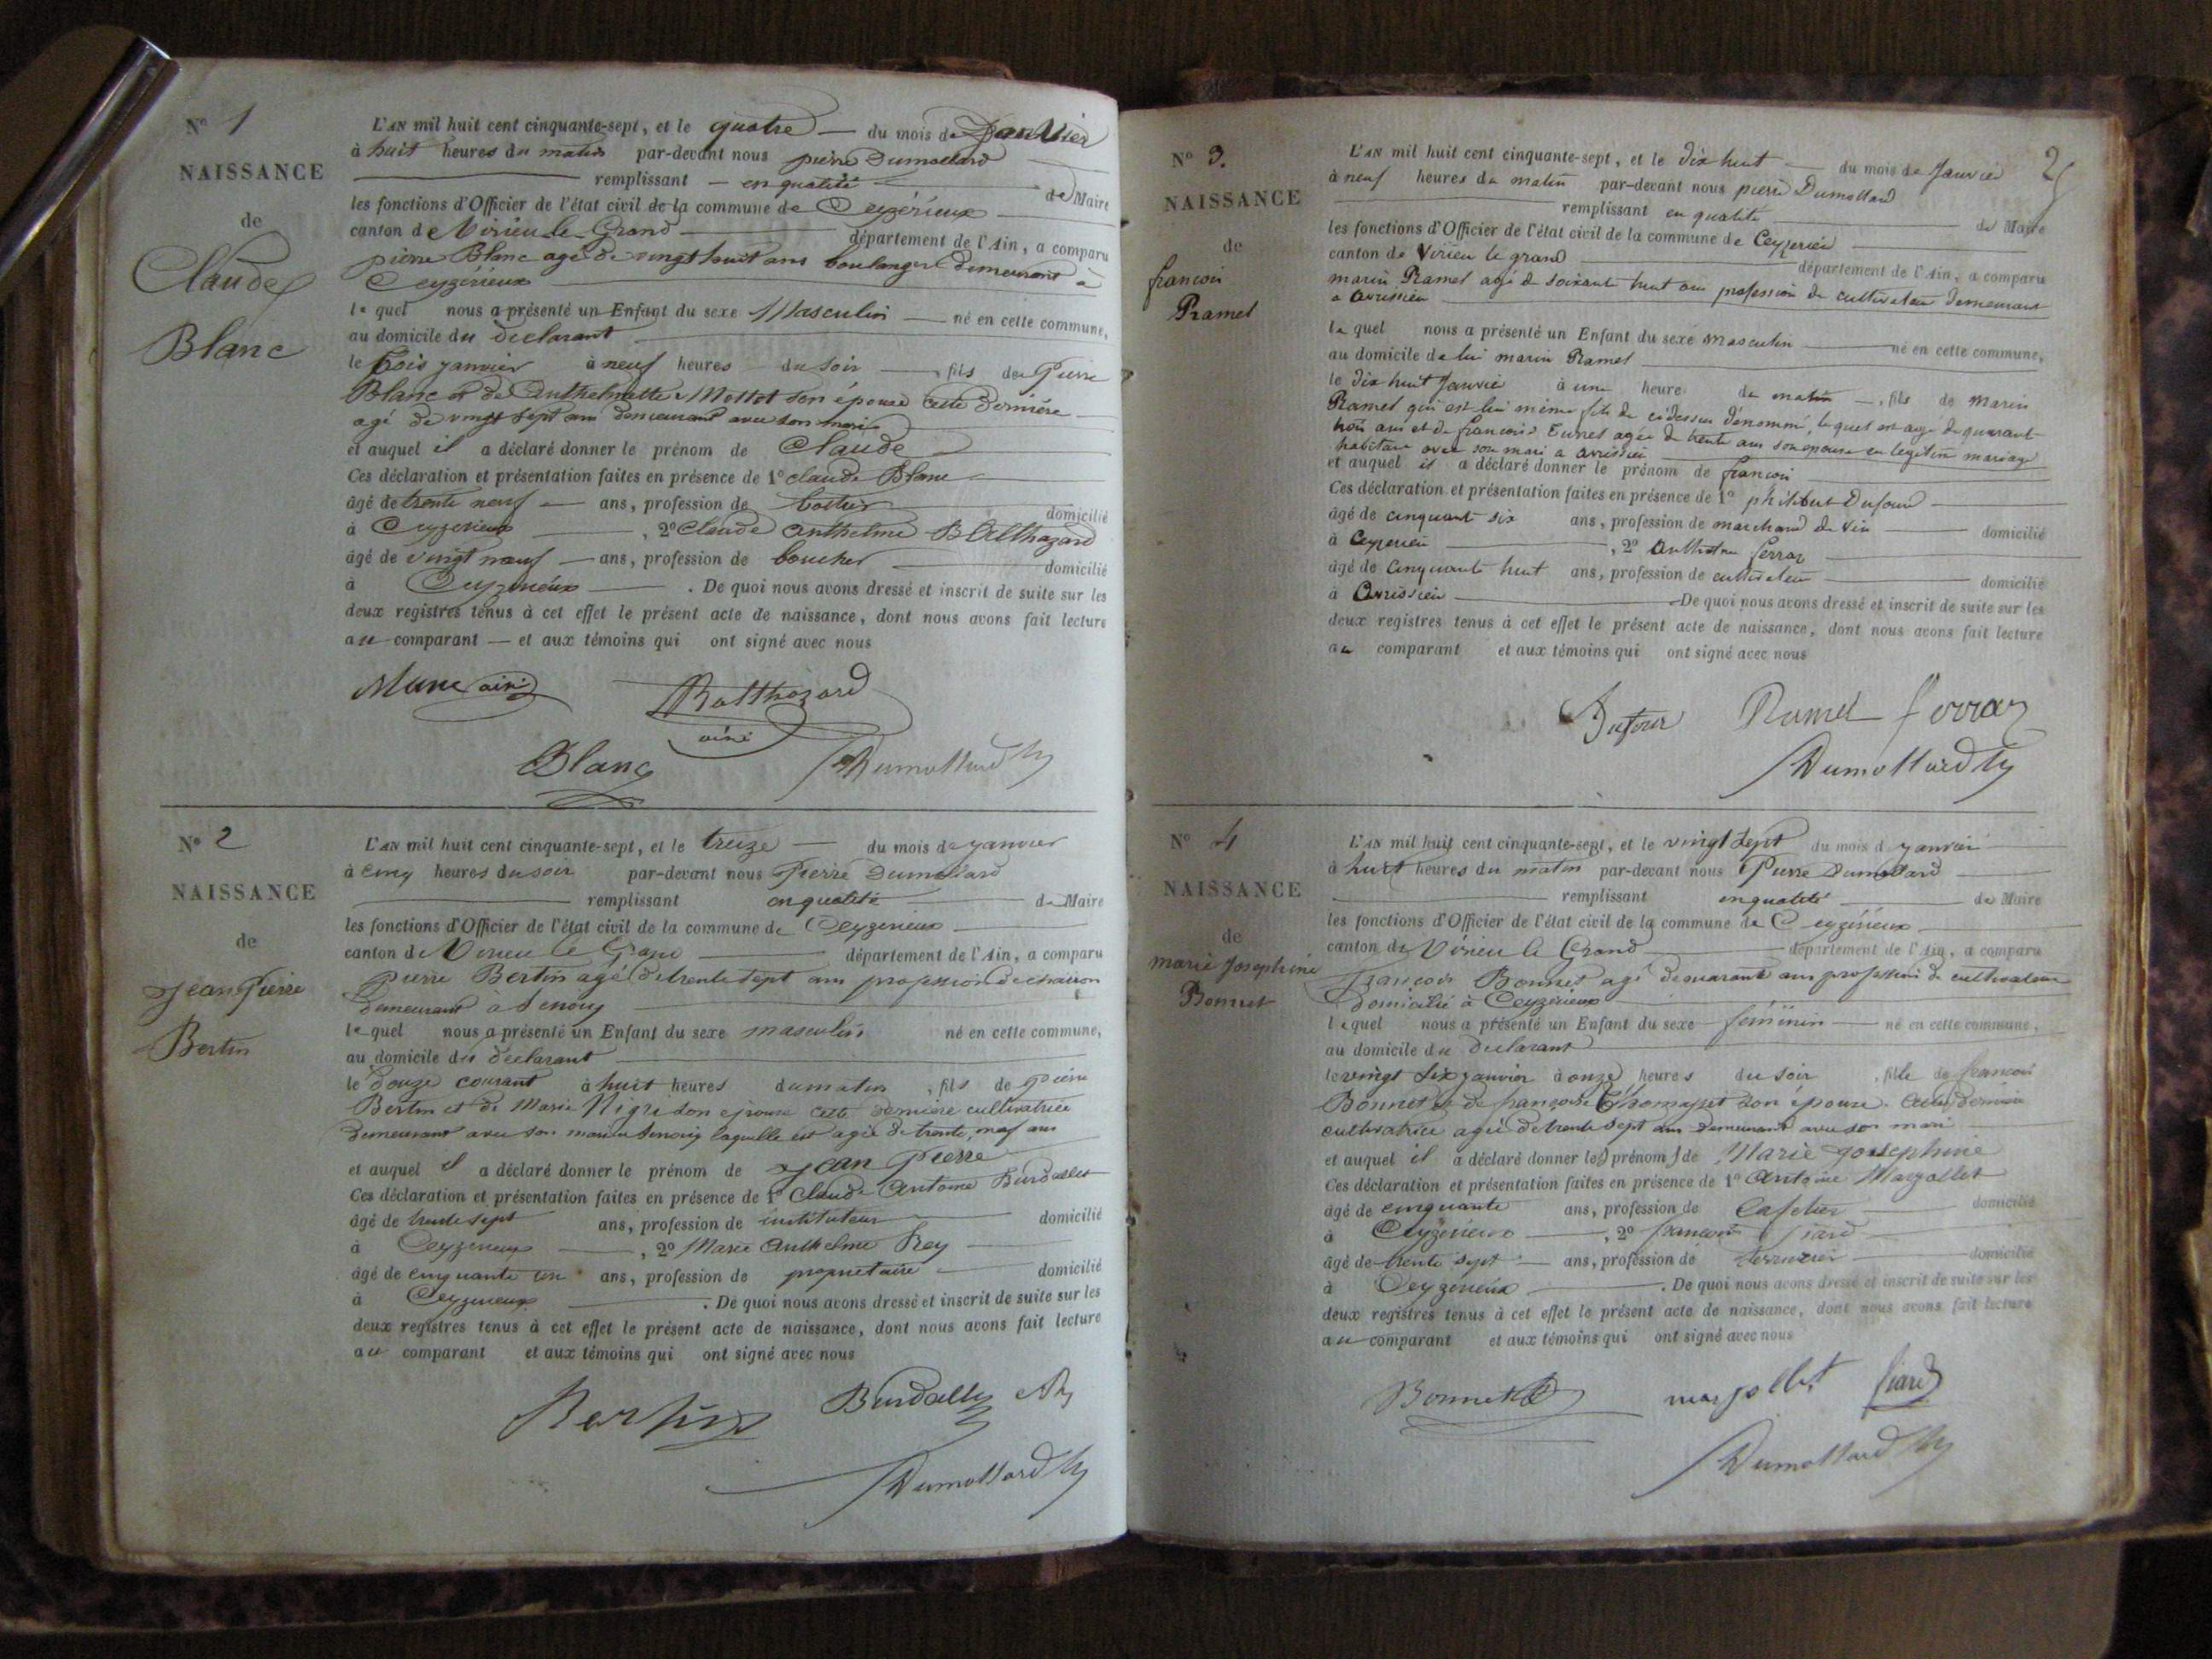 N° 1
NAISSANCE
de
Claude
Blanc
L'AN mil huit cent cinquante-sept, et le quatre du mois de Janvier
à huit heures du matin par-devant nous pierre Dumollard
remplissant en qualité de Maire
les fonctions d'Officier de l'état civil de la commune de Ceyzérieux
canton de Virieu-le-Grand département de l'Ain, a comparu
pierre Blanc agé de vingt huit ans boulanger demeurant à
Ceyzérieux
le quel nous a présenté un Enfant du sexe Masculin né en cette commune,
au domicile du declarant
le trois janvier à neuf heures du soir, fils de Pierre
Blanc et de Anthelmette Mottot son épouse cette dernière
agé de vingt sept ans demeurant avec son mari
et auquel il a déclaré donner le prénom de Claude
Ces déclaration et présentation faites en présence de 1° claude Blanc
âgé de trente neuf ans, profession de domicilié
à Ceyzerieux, 2° Claude anthelme Balthazard
âgé de vingt neuf ans, profession de boucher domicilié
à Ceyzerieux. De quoi nous avons dressé et inscrit de suite sur les
deux registres tenus à cet effet le présent acte de naissance, dont nous avons fait lecture
au comparant et aux témoins qui ont signé avec nous
Balthazard
ainé
Blanc Dumollard
N° 2
NAISSANCE
de
Jean Pierre
Bertin
L'AN mil huit cent cinquante-sept, et le treize du mois de janvier
à cinq heures du soir par-devant nous Pierre Dumollard
remplissant en qualité de Maire
les fonctions d'Officier de l'état civil de la commune de Ceyzerieux
canton de Virieu le Grand département de l'Ain, a comparu
Pierre Bertin agé de trente sept ans profession de
demeurant a
le quel nous a présenté un Enfant du sexe masculin né en cette commune,
au domicile du declarant
le douze courant à huit heures du matin, fils de pierre
Bertin et de Marie son epouse cette dernière cultivatrice
demeurant avec son mari laquelle est agée de trente neuf ans
et auquel il a déclaré donner le prénom de jean pierre
Ces déclaration et présentation faites en présence de 1° Claude Antoine Burdallet
âgé de trente sept ans, profession de instituteur domicilié
à Ceyzerieux, 2° Marie Anthelme Rey
âgé de cinquante un ans, profession de proprietaire domicilié
à Ceyzerieux. De quoi nous avons dressé et inscrit de suite sur les
deux registres tenus à cet effet le présent acte de naissance, dont nous avons fait lecture
au comparant et aux témoins qui ont signé avec nous
Bertin Burdallet
Dumollard
2
N° 3.
NAISSANCE
de
françois
Ramel
L'AN mil huit cent cinquante-sept, et le dix huit du mois de Janvier
à neuf heures du matin par-devant nous pierre Dumollard
remplissant en qualité de Maire
les fonctions d'Officier de l'état civil de la commune de Ceyzerieu
canton de Virieu le grand département de l'Ain, a comparu
marin Ramel agé de soixante huit ans profession de cultivateur demeurant
a avrissieu
le quel nous a présenté un Enfant du sexe masculin né en cette commune,
au domicile de lui marin Ramel
le dix huit Janvier à une heure du matin, fils de marin
Ramel qui est lui même fils de cidessus dénommé, lequel est agé de quarante
trois ans et de françoise agée de trente ans son epouse en legitime mariage
habitant avec son mari a avrissieu
et auquel il a déclaré donner le prénom de françois
Ces déclaration et présentation faites en présence de 1° philibert Dufour
âgé de cinquante six ans, profession de marchand de vin domicilié
à Ceyzerieu, 2° Anthelme ferraz
âgé de cinquante huit ans, profession de cultivateur domicilié
à Avrissieu De quoi nous avons dressé et inscrit de suite sur les
deux registres tenus à cet effet le présent acte de naissance, dont nous avons fait lecture
au comparant et aux témoins qui ont signé avec nous
Dufour Ramel ferraz
Dumollard
N° 4
NAISSANCE
de
marie Josephine
Bonnet
L'AN mil huit cent cinquante-sept, et le vingt sept du mois d janvier
à huit heures du matin par-devant nous Pierre Dumollard
remplissant en qualité de Maire
les fonctions d'Officier de l'état civil de la commune de Ceyzérieux
canton de Virieu le Grand département de l'Ain, a comparu
françois Bonnet agé de quarante ans profession de cultivateur
domicilié à Ceyzerieux
le quel nous a présenté un Enfant du sexe féminin né en cette commune,
au domicile du declarant
le vingt six janvier à onze heures du soir, fille de françois
Bonnet et de françoise Thomasset son épouse. Cette dernière
cultivatrice agée de trente sept ans demeurant avec son mari
et auquel il a déclaré donner les prénoms de Marie josephine
Ces déclaration et présentation faites en présence de 1° Antoine Marjollet
âgé de cinquante ans, profession de Cafetier domicilié
à Ceyzerieux, 2° françois
âgé de trente sept ans, profession de domicilié
à Ceyzerieux. De quoi nous avons dressé et inscrit de suite sur les
deux registres tenus à cet effet le présent acte de naissance, dont nous avons fait lecture
au comparant et aux témoins qui ont signé avec nous
Bonnet marjollet
Dumollard